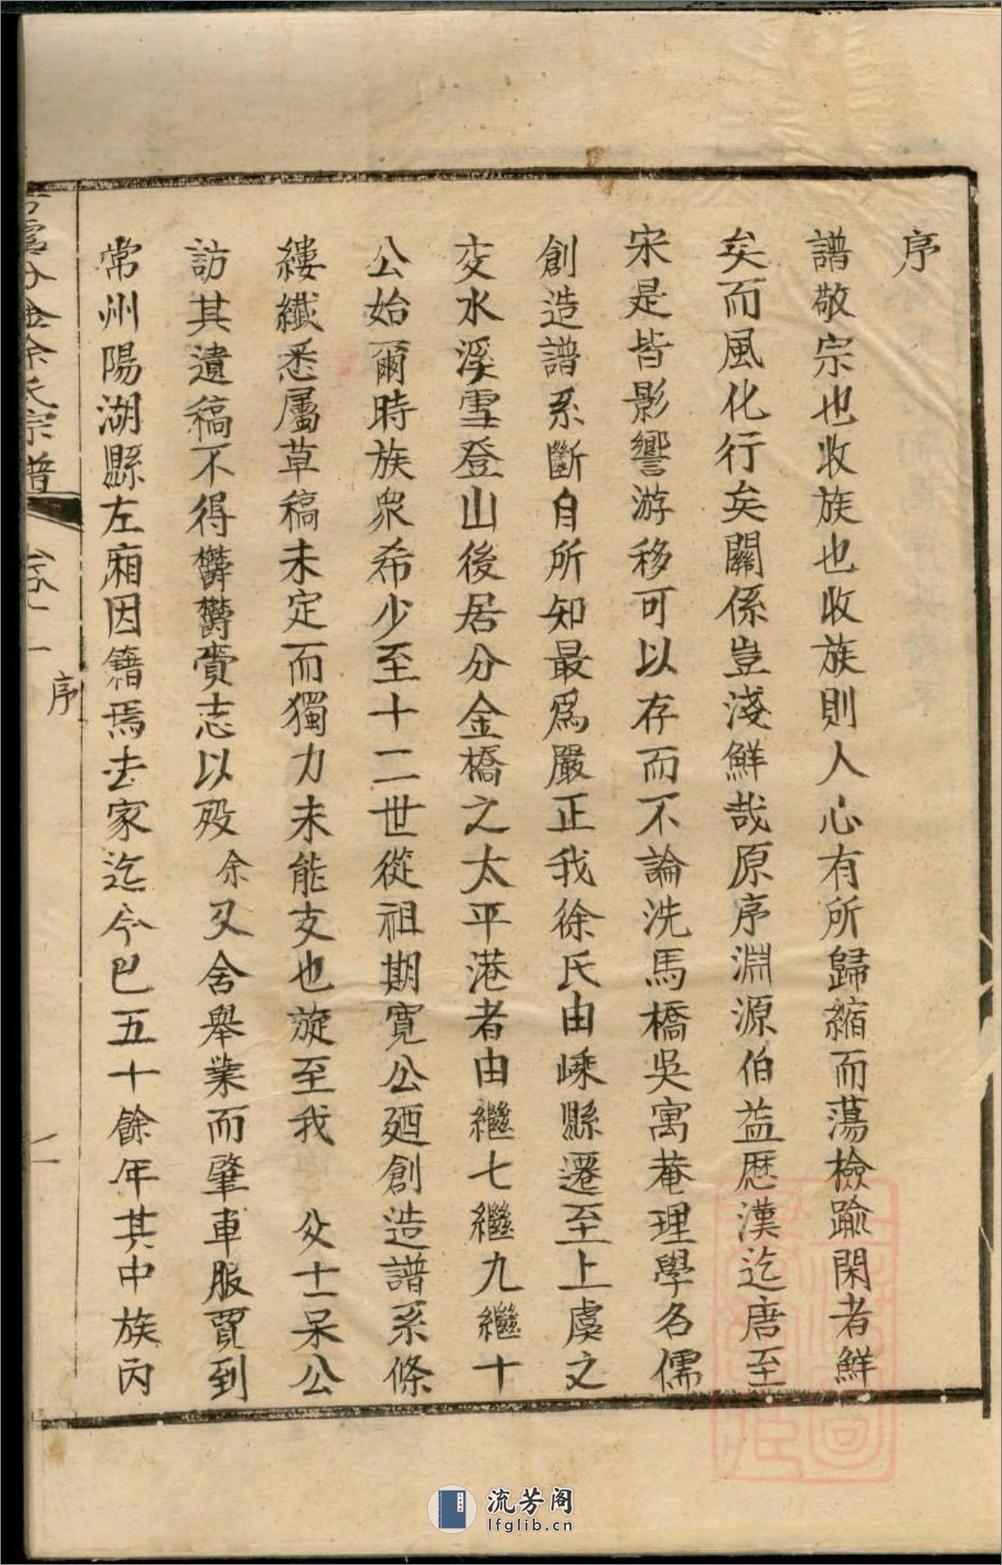 序
譜敬宗也收族也收族則人心有所歸縮而蕩檢踰閑者鮮
矣而風化行矣關係豈淺鮮哉原序淵源伯益歷漢迄唐至
宋是皆影響游移可以存而不論洗馬橋吳寓菴理學名儒
創造譜系斷自所知最爲嚴正我徐氏由嵊縣遷至上虞之
交水溪雪登山後居分金橋之太平港者由繼七繼九繼十
公始爾時族衆希少至十二世從祖期寬公廼創造譜系條
縷纖悉屬草稿未定而獨力未能支也旋至我 父士杲公
訪其遺稿不得鬱鬱賫志以歿 余又舍舉業而肇車服賈到
常州陽湖縣左廂因籍焉去家迄今已五十餘年其中族丙
分金徐氏宗譜
卷一
序
一
流芳阁
lfglib.cn